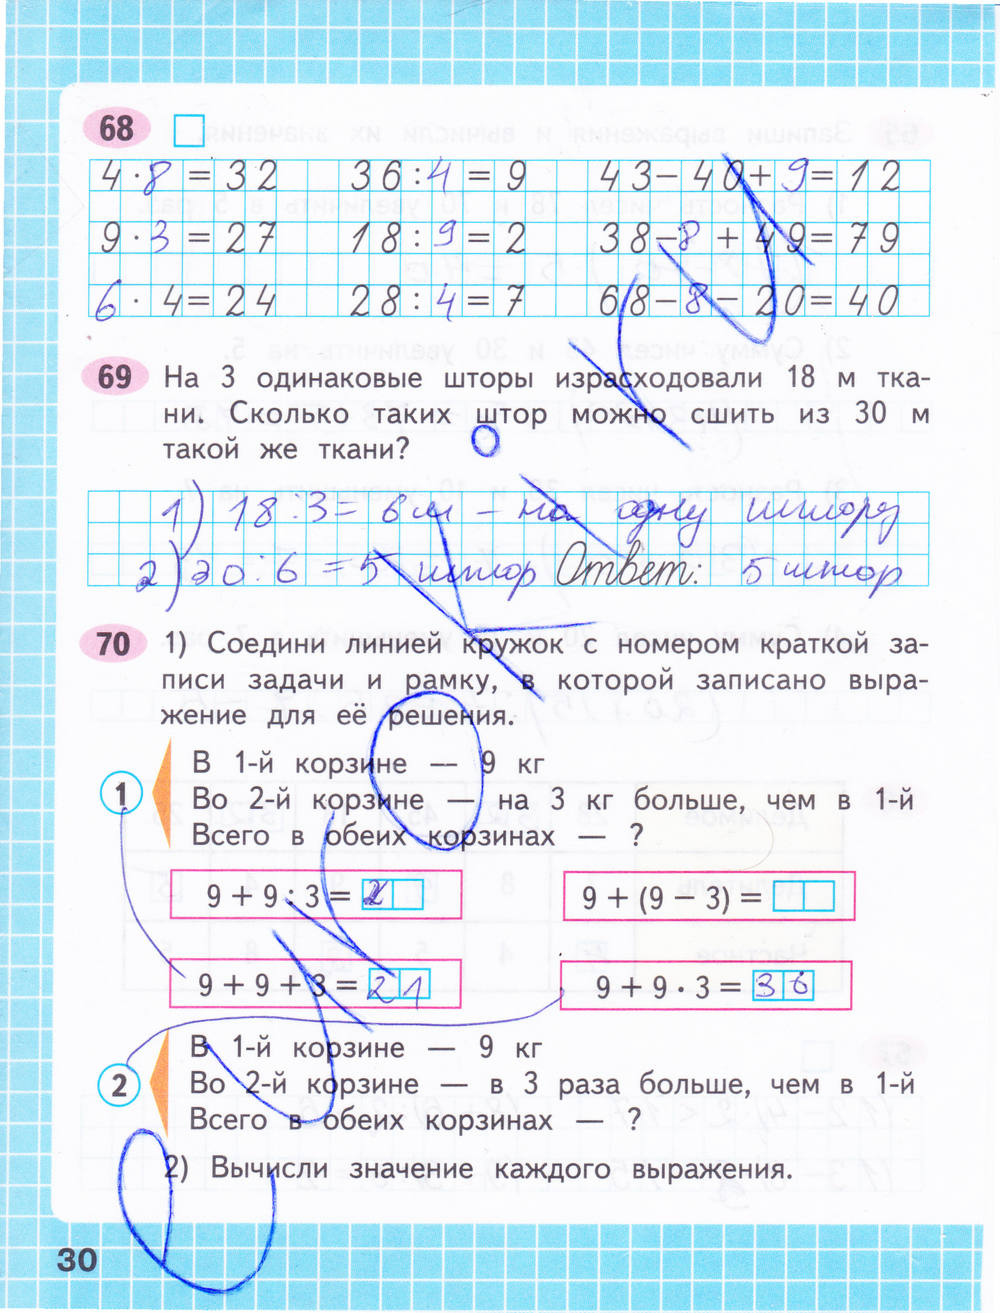 68
4 · 8 = 32 36 : 4 = 9 43 − 40 + 9 = 12
9 · 3 = 27 18 : 9 = 2 38 − 8 + 49 = 79
6 · 4 = 24 28 : 4 = 7 68 − 8 − 20 = 40
69 На 3 одинаковые шторы израсходовали 18 м тка-
ни. Сколько таких штор можно сшить из 30 м
такой же ткани?
1) 18 : 3 = 6 м – на одну штору
2) 30 : 6 = 5 штор Ответ: 5 штор
70 1) Соедини линией кружок с номером краткой за-
писи задачи и рамку, в которой записано выра-
жение для её решения.
В 1-й корзине — 9 кг
1 Во 2-й корзине — на 3 кг больше, чем в 1-й
Всего в обеих корзинах — ?
9 + 9 : 3 = 9 + (9 − 3) =
9 + 9 + 3 = 21 9 + 9 · 3 = 36
В 1-й корзине — 9 кг
2 Во 2-й корзине — в 3 раза больше, чем в 1-й
Всего в обеих корзинах — ?
2) Вычисли значение каждого выражения.
30